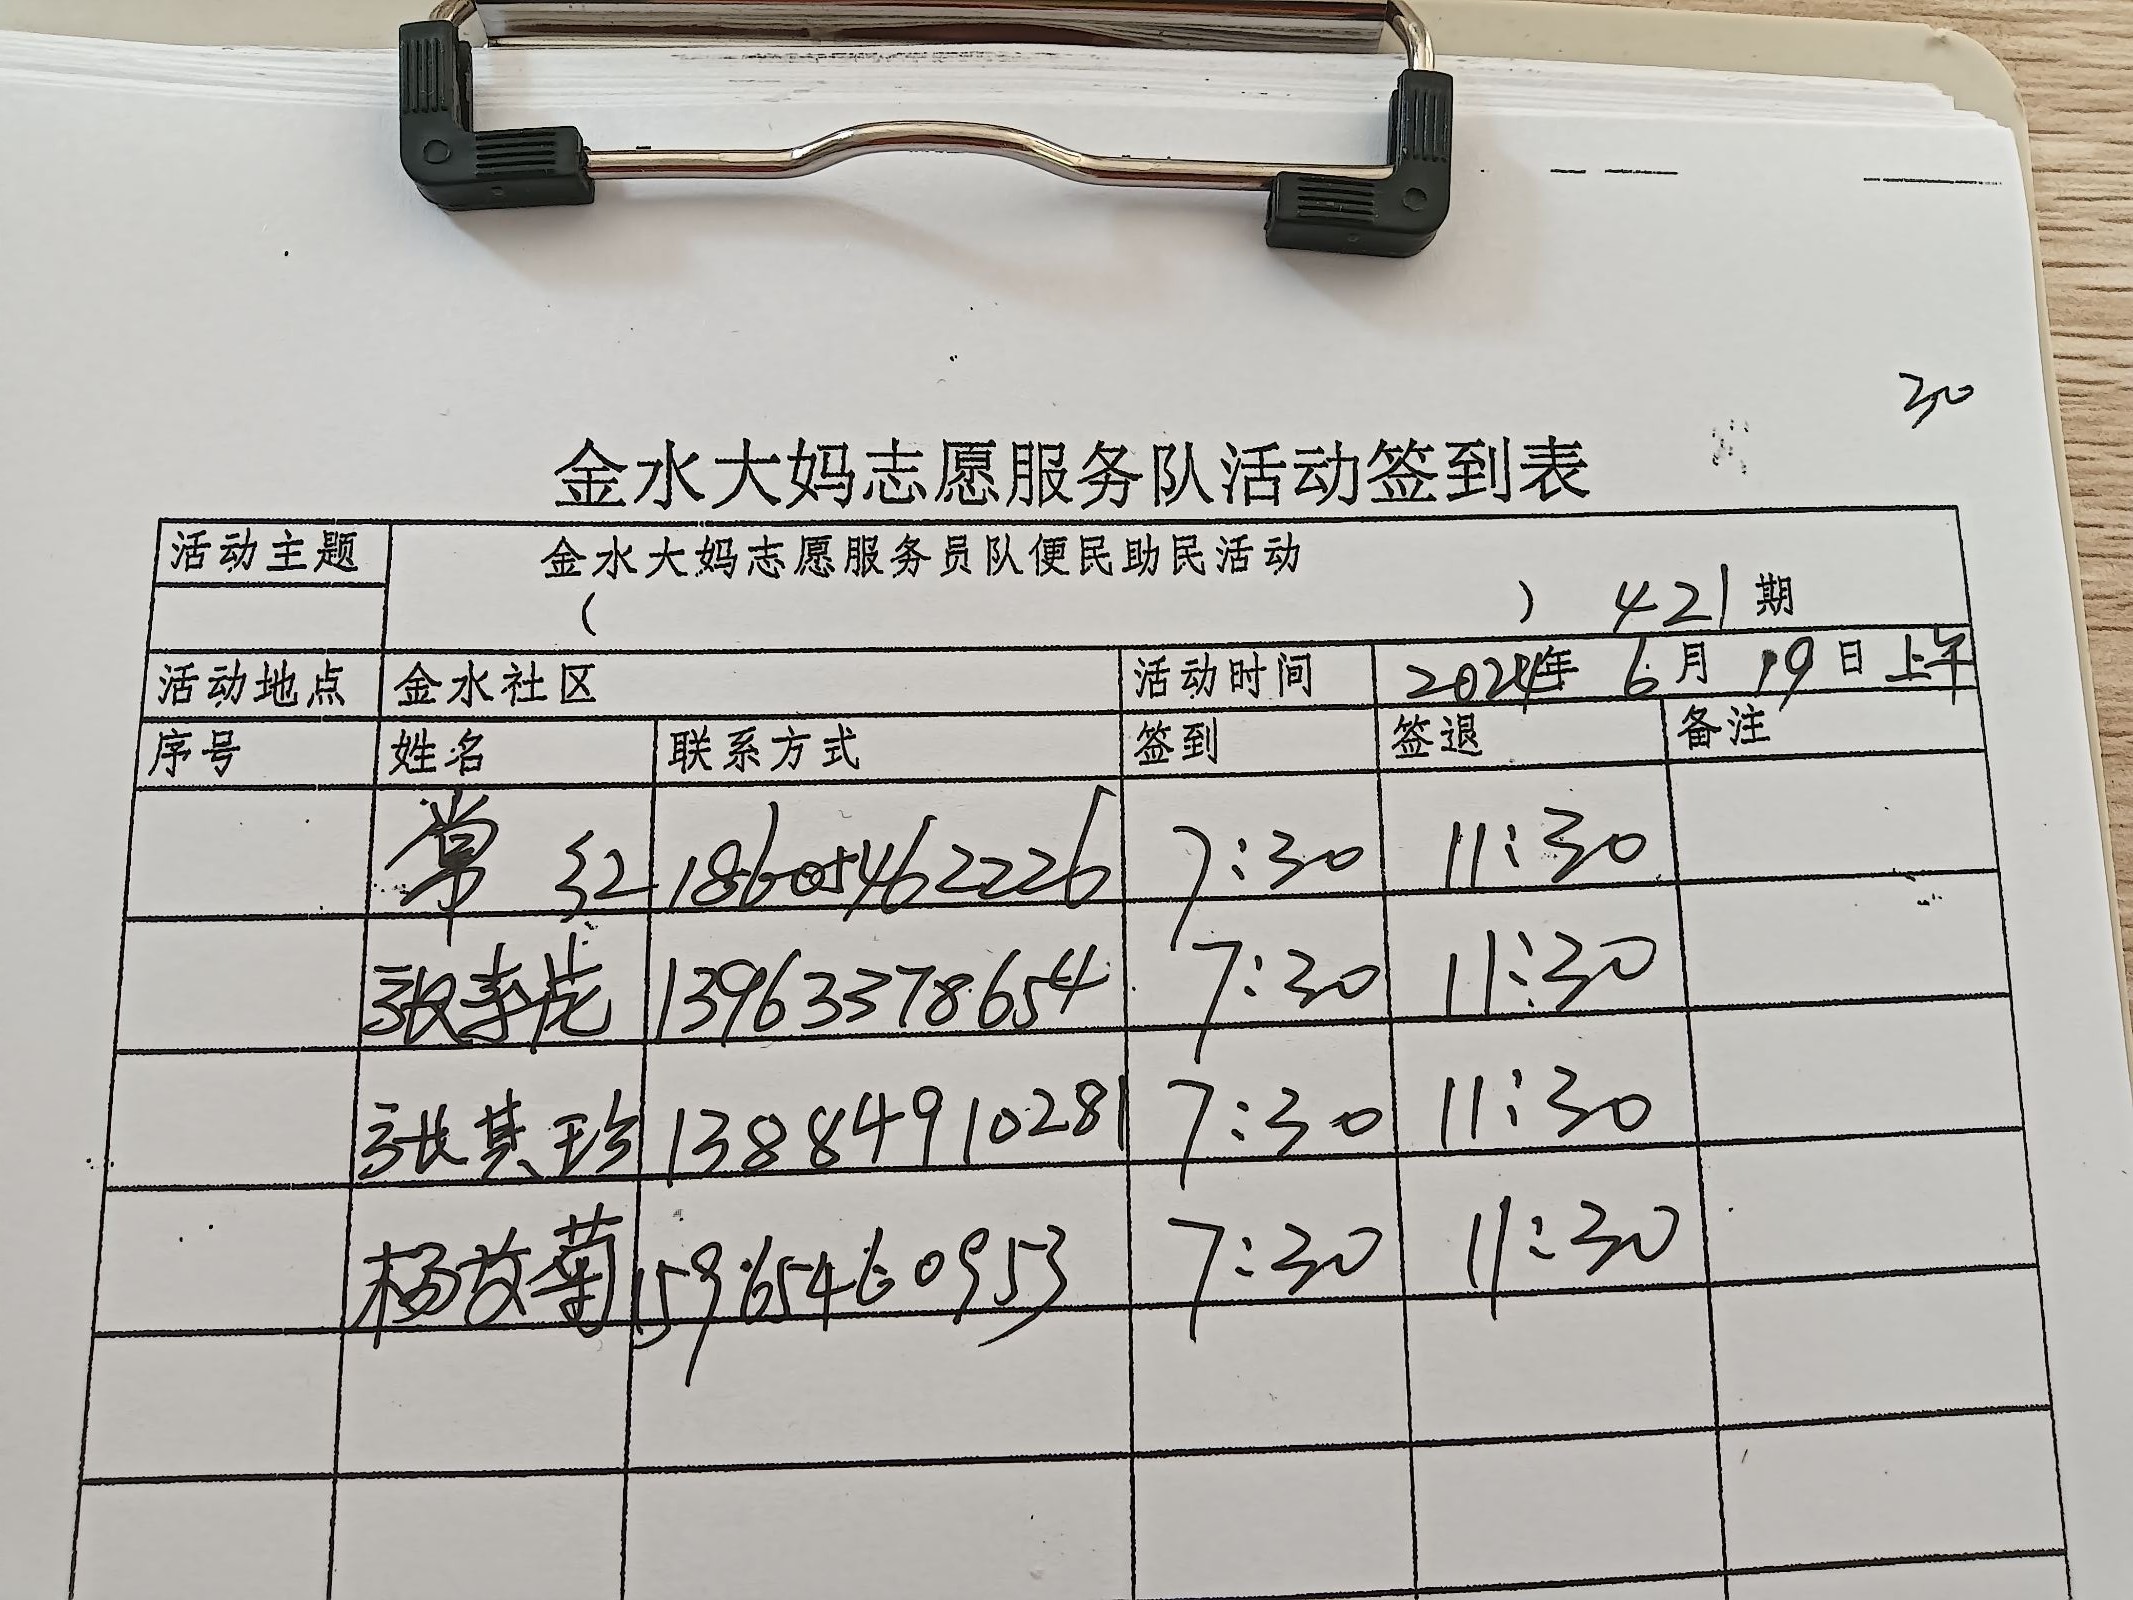 30
金水大妈志愿服务队活动签到表
活动主题 金水大妈志愿服务员队便民助民活动
( ) 421期
活动地点 金水社区 活动时间 2024年 6月 19日上午
序号 姓名 联系方式 签到 签退 备注
常红 18605462226 7:30 11:30
张 13963378654 7:30 11:30
张其珍 13884910281 7:30 11:30
杨 菊 15965460953 7:30 11:30